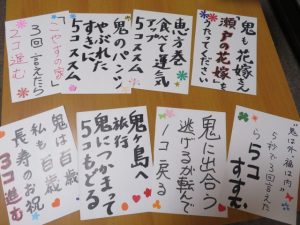 鬼も花嫁え
瀬戸の花嫁を
うたってください
恵方巻
食べて運気
アップ
5コススム
鬼のパンツ
やぶれた
すきに
5コススム
「こやすの家」
3回言えたら
2コ進む
"鬼は外福は内"
5秒で3回言えた
ら5コ
すすむ
鬼に出合う
逃げるが転んで
1コ戻る
鬼ヶ島へ
旅行
鬼につかまって
5コもどる
鬼は百歳
私も百歳
長寿のお祝
3コ進む